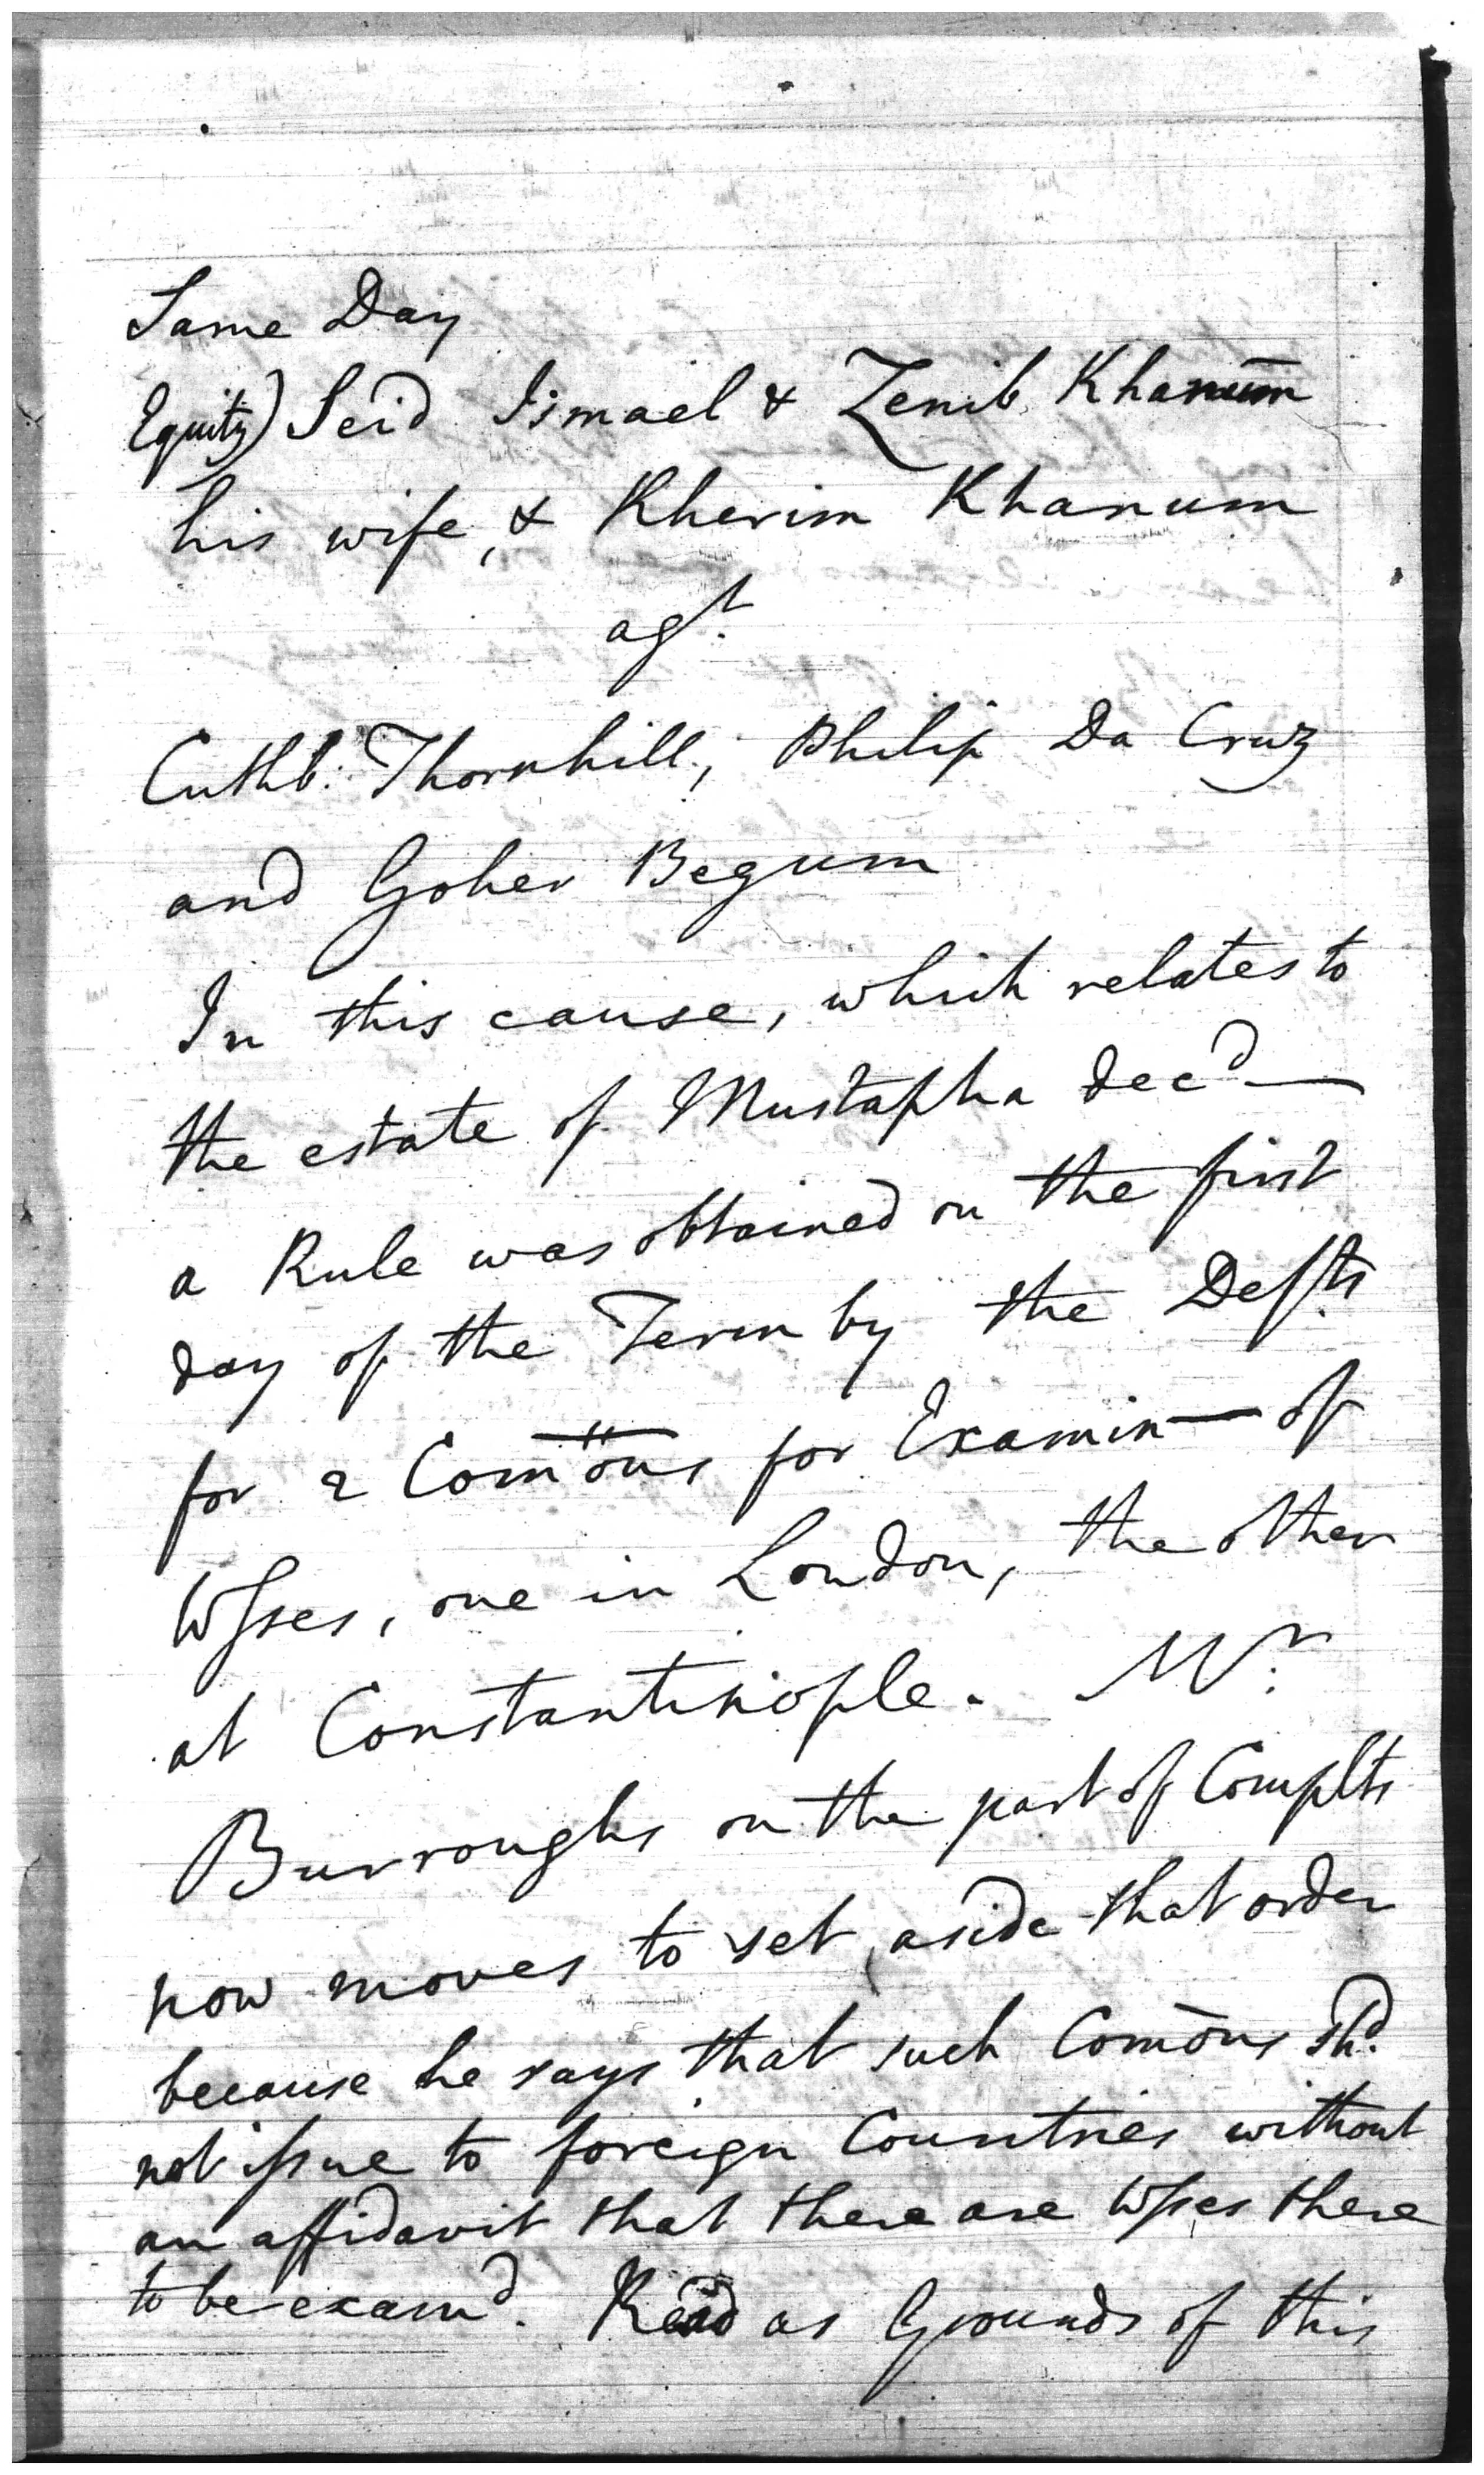 Same Day
Equity) Seid Ismael & Zenib Khanum
his wife, & Kherim Khanum
agt.
Cuthbt: Thornhill, Philip Da Cruz
and Goher Begum
In this cause, which relates to
the estate of Mustapha decd—
a Rule was obtained on the first
day of the Term by the Defts
for 2 Comōns for Examin— of
Wsses, one in London, the other
at Constantinople. Mr.
Burroughs on the part of Complts
now moves to set aside that order
because he says that such Comōns shd.
not issue to foreign Countries without
an affidavit that there are Wsses there
to be examd. Read as Grounds of this